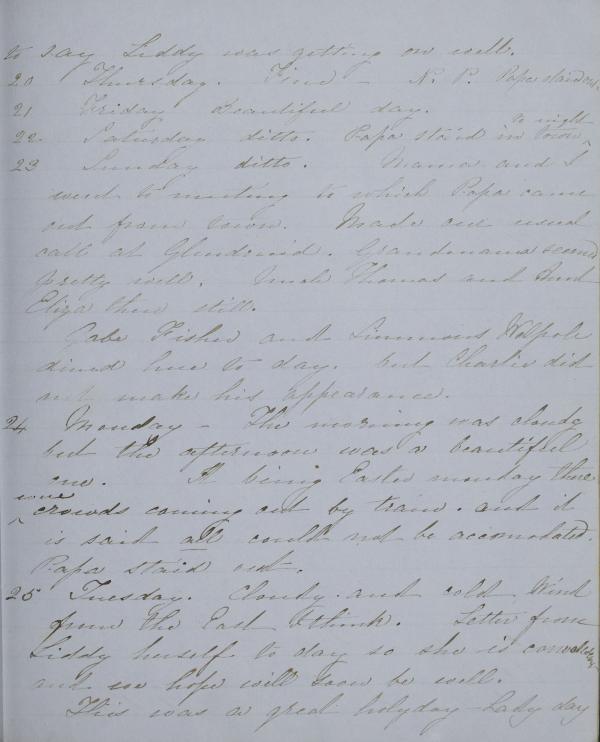 to say Liddy was getting on well.
20 Thursday. Fine - N. P. Papa staid out.
21 Friday Beautiful day.
22 Saturday ditto. Papa staid in town to night
23 Sunday ditto. Mama and I
went to meeting to which Papa came
out from town. Made our usual
call at Glendruid. Grandmama seemed
pretty well. Uncle Thomas and Aunt
Eliza there still.
Gabe Fisher and Simmons Walpole
dined here to day. but Charlie did
not make his appearance.
24 Monday - The morning was cloudy
but the afternoon was a beautiful
one. It being Easter monday there
were crowds coming out by train. and it
is said all could not be accomodated.
Papa staid out.
25 Tuesday. Cloudy. and cold. Wind
from the East I think. Letter from
Liddy herself to day so she is
and we hope will soon be well.
This was a great holyday - Lady day